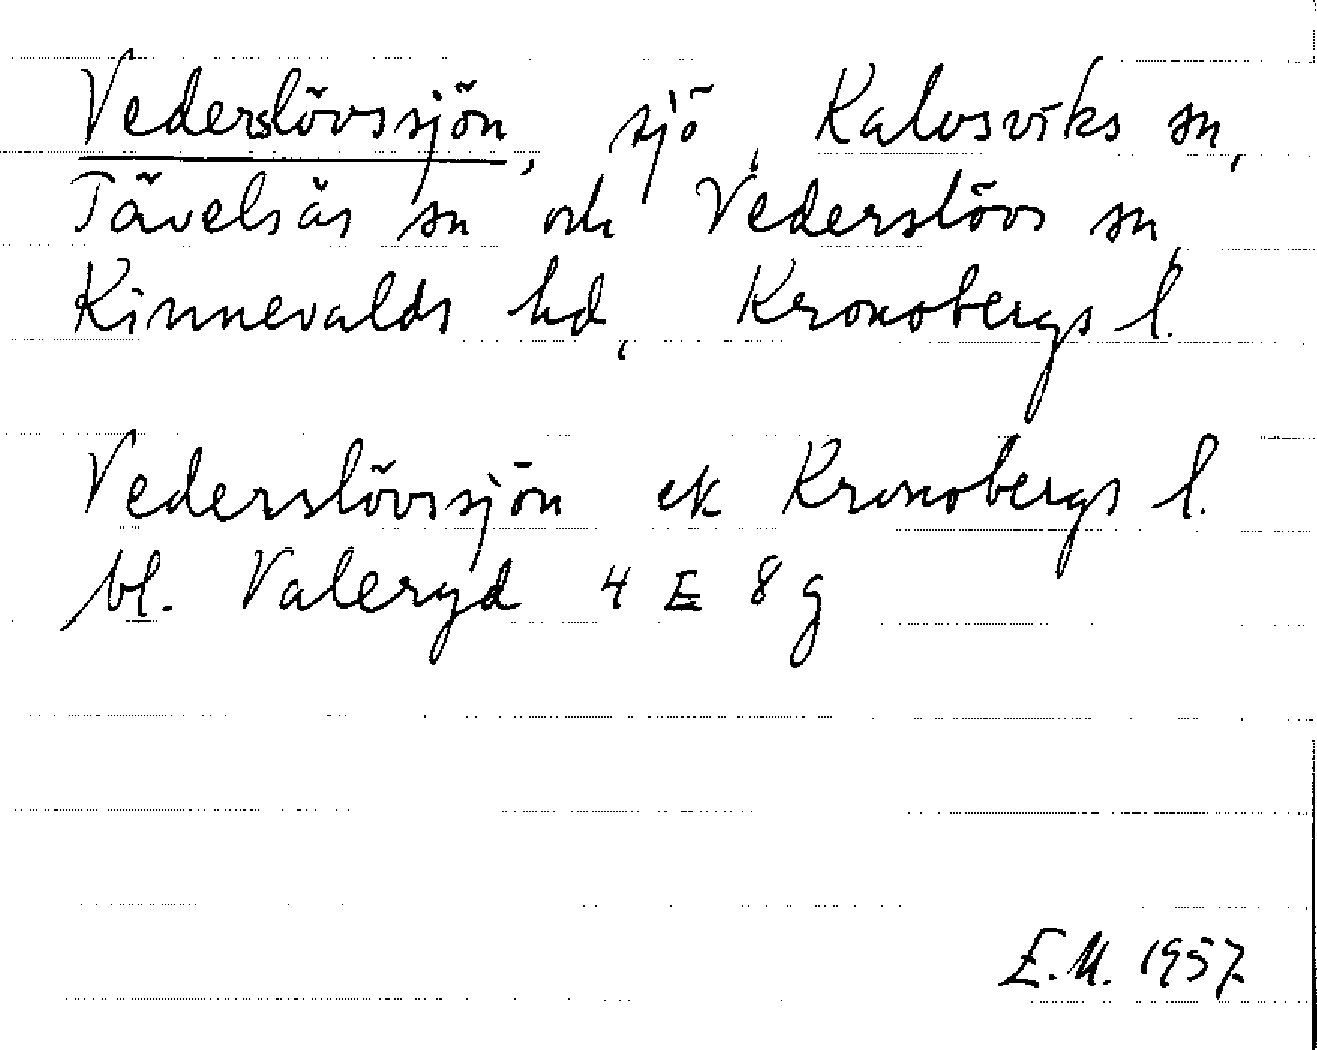 Vederslövssjön, sjö, Kalvsviks sn,
Tävelsås sn och Vederslövs sn,
Kinnevalds hd, Kronobergs l.
Vederslövssjön ek Kronobergs l.
bl. Valeryd 4 E 8 g
E.M. 1957